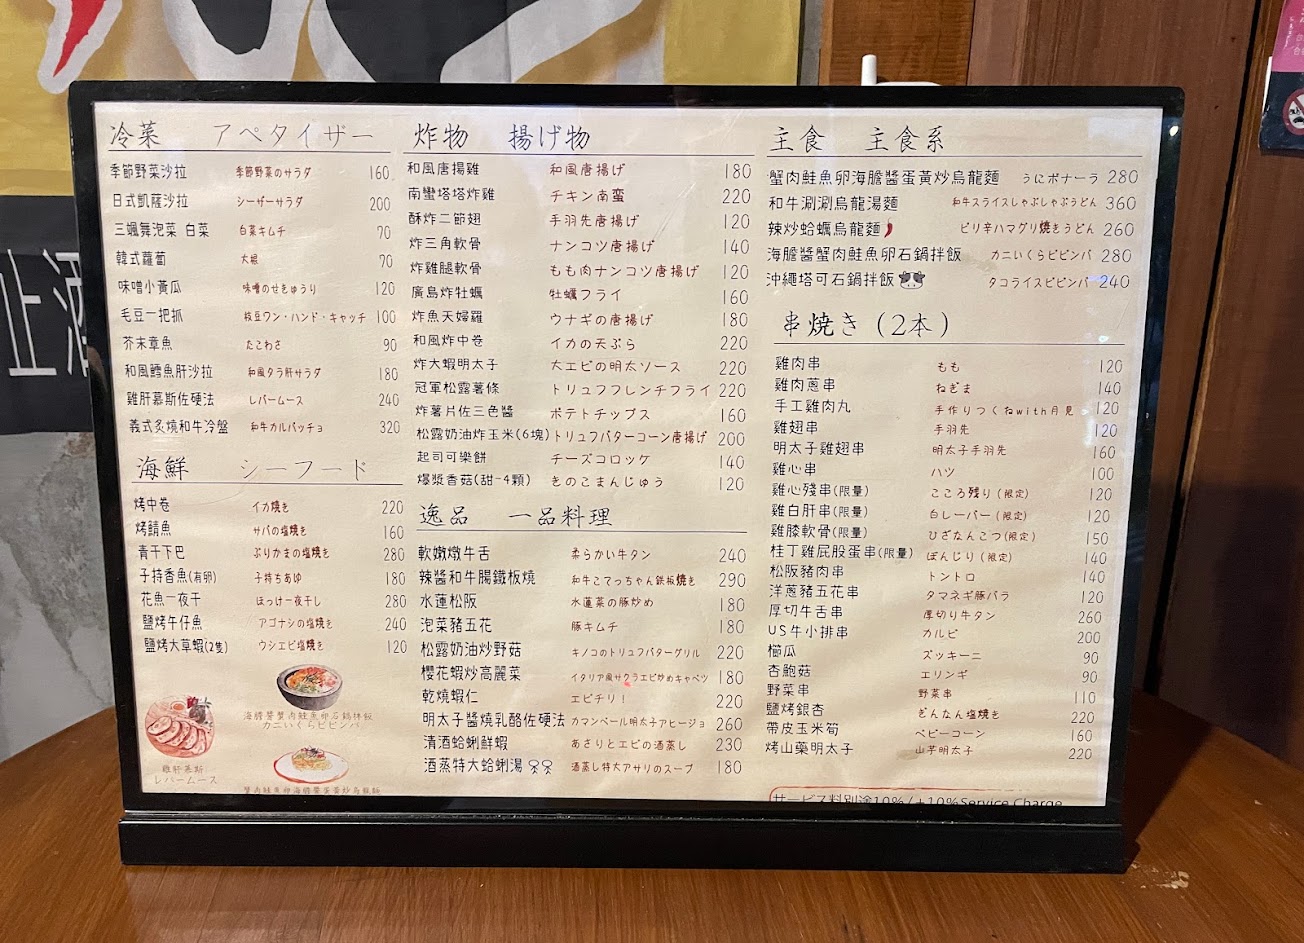 冷菜 アペタイザー
季節野菜沙拉 季節野菜のサラダ 160
日式凱薩沙拉 シーザーサラダ 200
三颯舞泡菜 白菜 白菜キムチ 70
韓式蘿蔔 大根 70
味噌小黃瓜 味噌のせきゅうり 120
毛豆一把抓 枝豆ワン・ハンド・キャッチ 100
芥末章魚 たこわさ 90
和風鱈魚肝沙拉 和風タラ肝サラダ 180
雞肝慕斯佐硬法 レバームース 240
義式炙燒和牛冷盤 和牛カルパッチョ 320
海鮮 シーフード
烤中卷 イカ焼き 220
烤鯖魚 サバの塩焼き 160
青干下巴 ぶりかまの塩焼き 280
子持香魚(有卵) 子持ちあゆ 180
花魚一夜干 ほっけ一夜干し 280
鹽烤牛仔魚 アゴナシの塩焼き 240
鹽烤大草蝦(2隻) ウシエビ塩焼き 120
海膽醬蟹肉鮭魚卵石鍋拌飯
カニいくらビビンバ
雞肝慕斯
レバームース
蟹肉鮭魚卵海膽醬蛋黃炒烏龍麵
炸物 揚げ物
和風唐揚雞 和風唐揚げ 180
南蠻塔塔炸雞 チキン南蛮 220
酥炸二節翅 手羽先唐揚げ 120
炸三角軟骨 ナンコツ唐揚げ 140
炸雞腿軟骨 もも肉ナンコツ唐揚げ 120
廣島炸牡蠣 牡蠣フライ 160
炸魚天婦羅 ウナギの唐揚げ 180
和風炸中卷 イカの天ぷら 220
炸大蝦明太子 大エビの明太ソース 220
冠軍松露薯條 トリュフフレンチフライ 220
炸薯片佐三色醬 ポテトチップス 160
松露奶油炸玉米(6塊) トリュフバターコーン唐揚げ 200
起司可樂餅 チーズコロッケ 140
爆漿香菇(甜-4顆) きのこまんじゅう 120
逸品 一品料理
軟嫩燉牛舌 柔らかい牛タン 240
辣醬和牛腸鐵板燒 和牛こてっちゃん鉄板焼き 290
水蓮松阪 水蓮菜の豚炒め 180
泡菜豬五花 豚キムチ 180
松露奶油炒野菇 キノコのトリュフバターグリル 220
櫻花蝦炒高麗菜 イタリア風サクラエビ炒めキャベツ 180
乾燒蝦仁 エビチリ! 220
明太子醬燒乳酪佐硬法 カマンベール明太子アヒージョ 260
清酒蛤蜊鮮蝦 あさりとエビの酒蒸し 230
酒蒸特大蛤蜊湯 酒蒸し特大アサリのスープ 180
主食 主食系
蟹肉鮭魚卵海膽醬蛋黃炒烏龍麵 うにボナーラ 280
和牛涮涮烏龍湯麵 和牛スライスしゃぶしゃぶうどん 360
辣炒蛤蠣烏龍麵 ピリ辛ハマグリ焼きうどん 260
海膽醬蟹肉鮭魚卵石鍋拌飯 カニいくらビビンバ 280
沖繩塔可石鍋拌飯 タコライスビビンバ 240
串焼き(2本)
雞肉串 もも 120
雞肉蔥串 ねぎま 140
手工雞肉丸 手作りつくねwith月見 120
雞翅串 手羽先 120
明太子雞翅串 明太子手羽先 160
雞心串 ハツ 100
雞心殘串(限量) こころ残り(限定) 120
雞白肝串(限量) 白レーバー(限定) 120
雞膝軟骨(限量) ひざなんこつ(限定) 150
桂丁雞屁股蛋串(限量) ぼんじり(限定) 140
松阪豬肉串 トントロ 140
洋蔥豬五花串 タマネギ豚バラ 120
厚切牛舌串 厚切り牛タン 260
US牛小排串 カルビ 200
櫛瓜 ズッキーニ 90
杏鮑菇 エリンギ 90
野菜串 野菜串 110
鹽烤銀杏 ぎんなん塩焼き 220
帶皮玉米筍 ベビーコーン 160
烤山藥明太子 山芋明太子 220
サービス料別途10%/+10%Service Charge